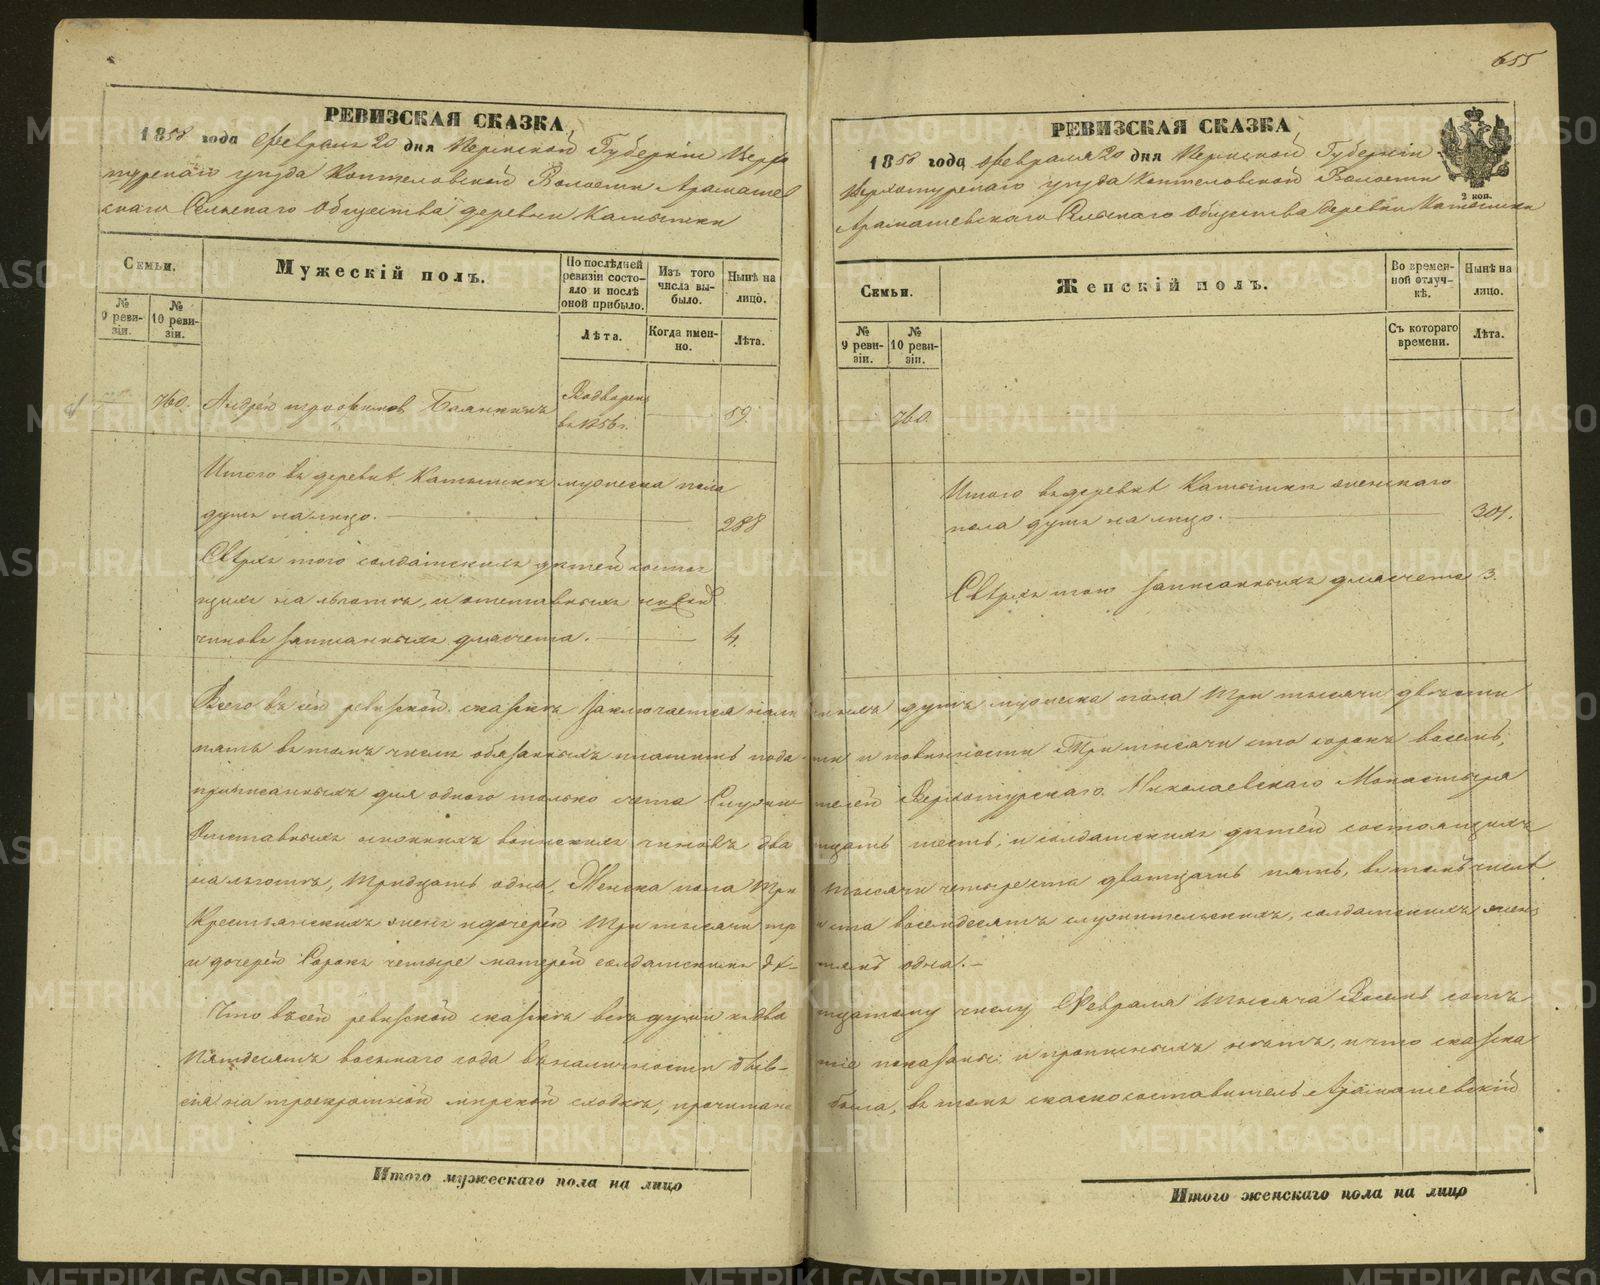 655
РЕВИЗСКАЯ СКАЗКА
1858 года февраля 20 дня Пермской Губерніи Верхо
турскаго уѣзда Коптеловской Волости Арамашев
скаго Сельскаго Общества деревни Катышки
Семьи.
Мужескій полъ.
По послѣдней ревизіи состояло и послѣ оной прибыло.
Изъ того числа выбыло.
Нынѣ на лицо.
№ 9 ревизіи.
№ 10 ревизіи.
Лѣта.
Когда именно.
Лѣта.
760. Андрей Трофимов Водворенъ въ 1856 г. 59.
Итого въ деревнѣ Катышкѣ мужеска пола
душъ на лицо. 288
Свѣрхъ того солдатскихъ дѣтей состоя
щихъ на льготѣ, и отставныхъ
чиновъ записанныхъ для счета. 4.
РЕВИЗСКАЯ СКАЗКА
1858 года февраля 20 дня Пермской Губерніи
Верхотурскаго уѣзда Коптеловской Волости
Арамашевскаго Сельскаго Общества деревни Катышки
2 коп.
Семьи.
Женскій полъ.
Во временной отлучкѣ.
Нынѣ на лицо.
№ 9 ревизіи.
№ 10 ревизіи.
Съ котораго времени.
Лѣта.
760.
Итого въ деревнѣ Катышкѣ женскаго
пола душъ на лицо. 301.
Свѣрхъ того записанныхъ для счета 3.
Всего въ сей ревизской сказкѣ заключается налич нымъ душъ мужеска пола Три тысячи двѣсти
пять въ томъ числѣ обязанныхъ платить пода ти и повинности Три тысячи сто сорокъ восемь,
приписанныхъ для одного только счета Служи телей Верхотурскаго Николаевскаго Монастыря
Отставныхъ нижнихъ воинскихъ чиновъ два дцать шесть, и солдатскихъ дѣтей состоящихъ
на льготѣ, тридцать одна, Женска пола Три тысячи четыреста двадцать пять, въ томъ числѣ
Крестьянскихъ женъ и дочерей Три тысячи тр и ста восемдесятъ служительскихъ, солдатскихъ женъ
и дочерей Сорокъ четыре матерей солдатскихъ дѣ тямъ одна.
Что въ сей ревизской сказкѣ всѣ души къ два дцатому числу Февраля тысяча Восемь сотъ
Пятдесятъ восьмаго года въ наличности быв шіе показаны и прописныхъ нѣтъ, и что сказка
сія на троекратной мирской сходкѣ, прочитана была, въ томъ сказкосоставитель Арамашевскій
Итого мужескаго пола на лицо
Итого женскаго пола на лицо
METRIKI.GASO-URAL.RU